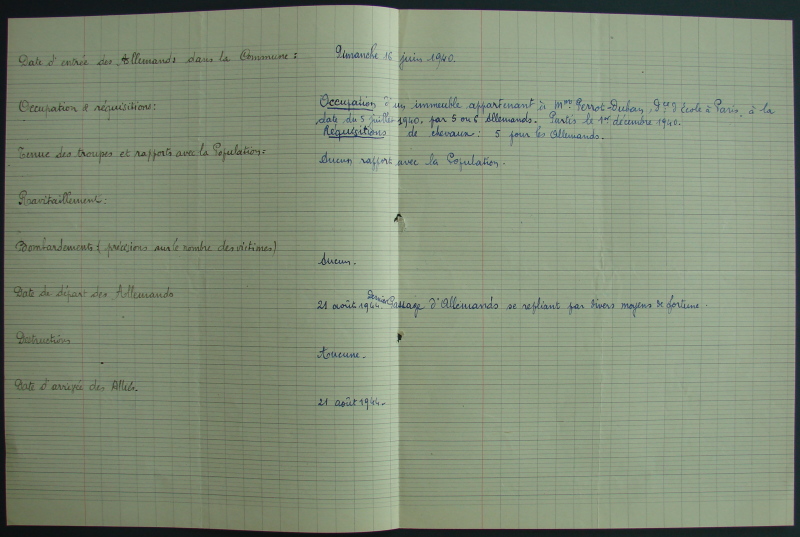 Date d'entrée des Allemands dans la Commune : Dimanche 16 juin 1940.
Occupation & réquisitions : Occupation d'un immeuble appartenant à Mme Perrot-Duban, Dce d'école à Paris, à la
date du 5 juillet 1940, par 5 ou 6 Allemands. Partis le 1er décembre 1940.
Réquisitions de chevaux : 5 pour les Allemands.
Tenue des troupes et rapports avec la Population :
Aucun rapport avec la Population.
Ravitaillement :
Bombardements ( précisions sur le nombre des victimes )
Aucun.
Date de départ des Allemands
21 août 1944. Dernier Passage d'Allemands se repliant par divers moyens de fortune.
Destructions
Aucune.
Date d'arrivée des Alliés.
21 août 1944.